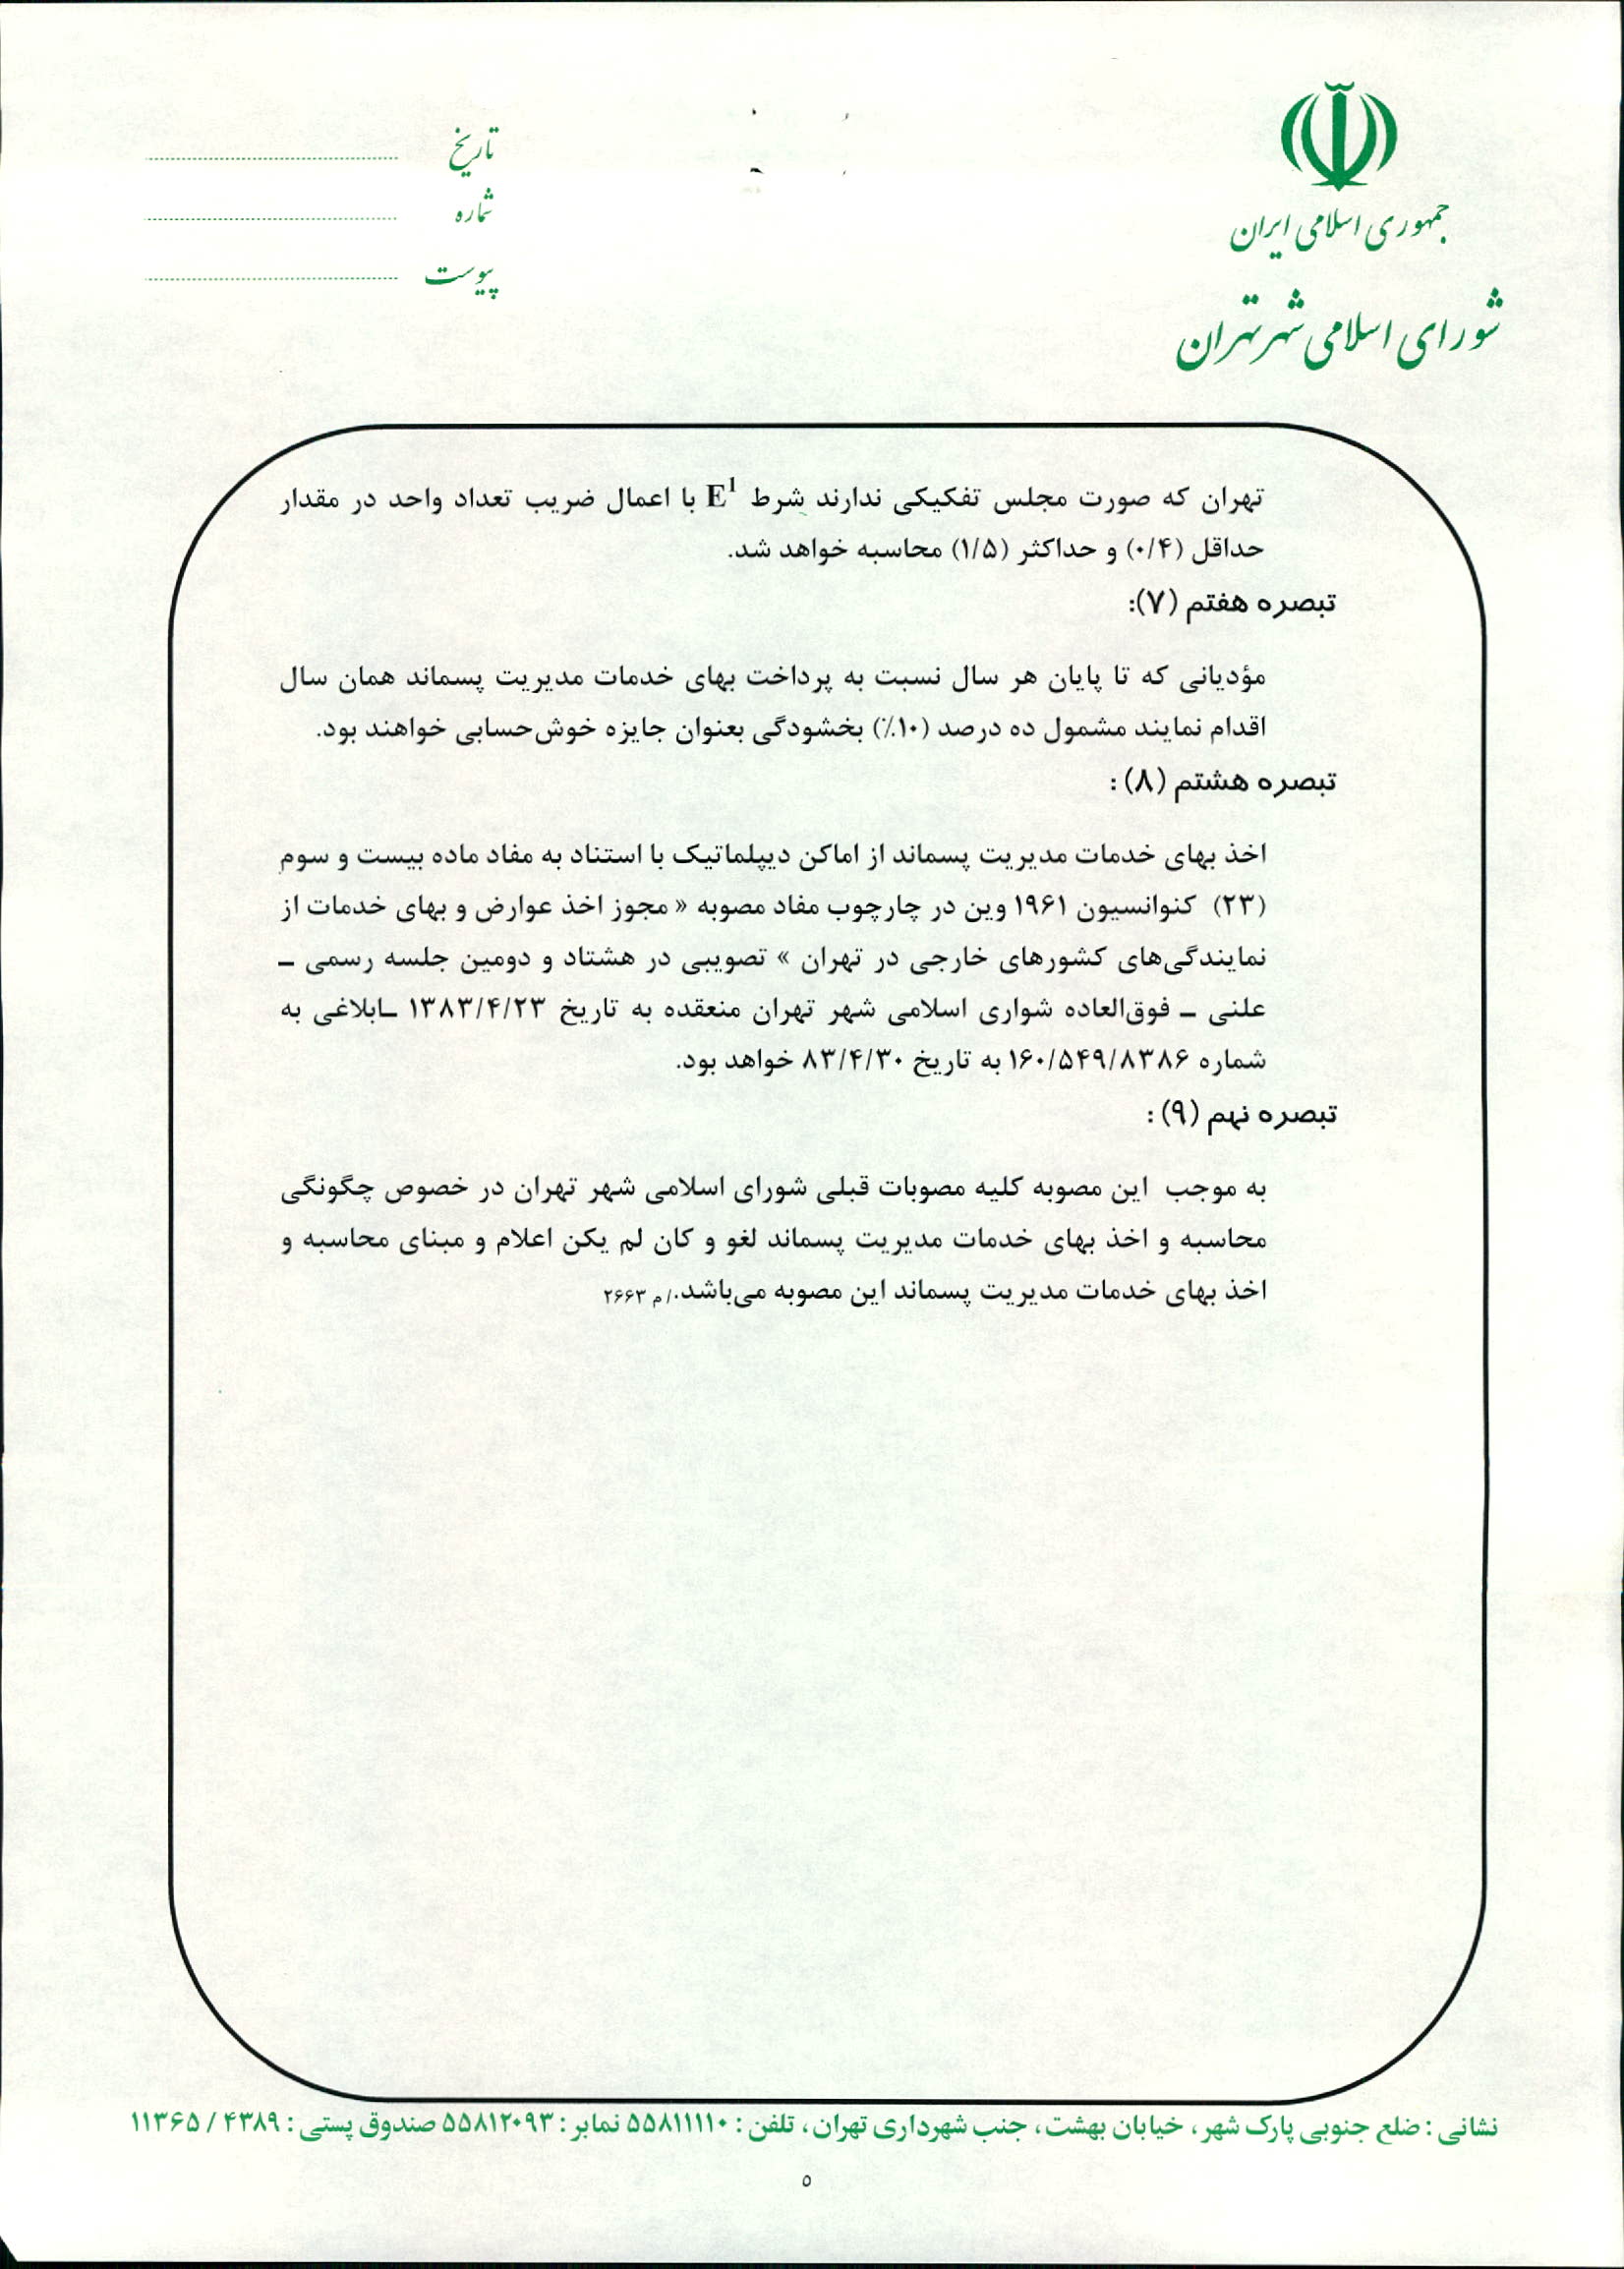 جمهوری اسلامی ایران
شورای اسلامی شهر تهران
تاریخ
شماره
پیوست
تهران که صورت مجلس تفکیکی ندارند شرط E¹ با اعمال ضریب تعداد واحد در مقدار
حداقل (۰/۴) و حداکثر (۱/۵) محاسبه خواهد شد.
تبصره هفتم (۷):
مؤدیانی که تا پایان هر سال نسبت به پرداخت بهای خدمات مدیریت پسماند همان سال
اقدام نمایند مشمول ده درصد (۱۰٪) بخشودگی بعنوان جایزه خوش‌حسابی خواهند بود.
تبصره هشتم (۸) :
اخذ بهای خدمات مدیریت پسماند از اماکن دیپلماتیک با استناد به مفاد ماده بیست و سوم
(۲۳) کنوانسیون ۱۹۶۱ وین در چارچوب مفاد مصوبه « مجوز اخذ عوارض و بهای خدمات از
نمایندگی‌های کشورهای خارجی در تهران » تصویبی در هشتاد و دومین جلسه رسمی ـ
علنی ـ فوق‌العاده شواری اسلامی شهر تهران منعقده به تاریخ ۱۳۸۳/۴/۲۳ ـابلاغی به
شماره ۱۶۰/۵۴۹/۸۳۸۶ به تاریخ ۸۳/۴/۳۰ خواهد بود.
تبصره نهم (۹) :
به موجب این مصوبه کلیه مصوبات قبلی شورای اسلامی شهر تهران در خصوص چگونگی
محاسبه و اخذ بهای خدمات مدیریت پسماند لغو و کان لم یکن اعلام و مبنای محاسبه و
اخذ بهای خدمات مدیریت پسماند این مصوبه می‌باشد./م ۲۶۶۳
نشانی : ضلع جنوبی پارک شهر، خیابان بهشت، جنب شهرداری تهران، تلفن : ۵۵۸۱۱۱۱۰ نمابر : ۵۵۸۱۲۰۹۳ صندوق پستی : ۴۳۸۹ / ۱۱۳۶۵
۵